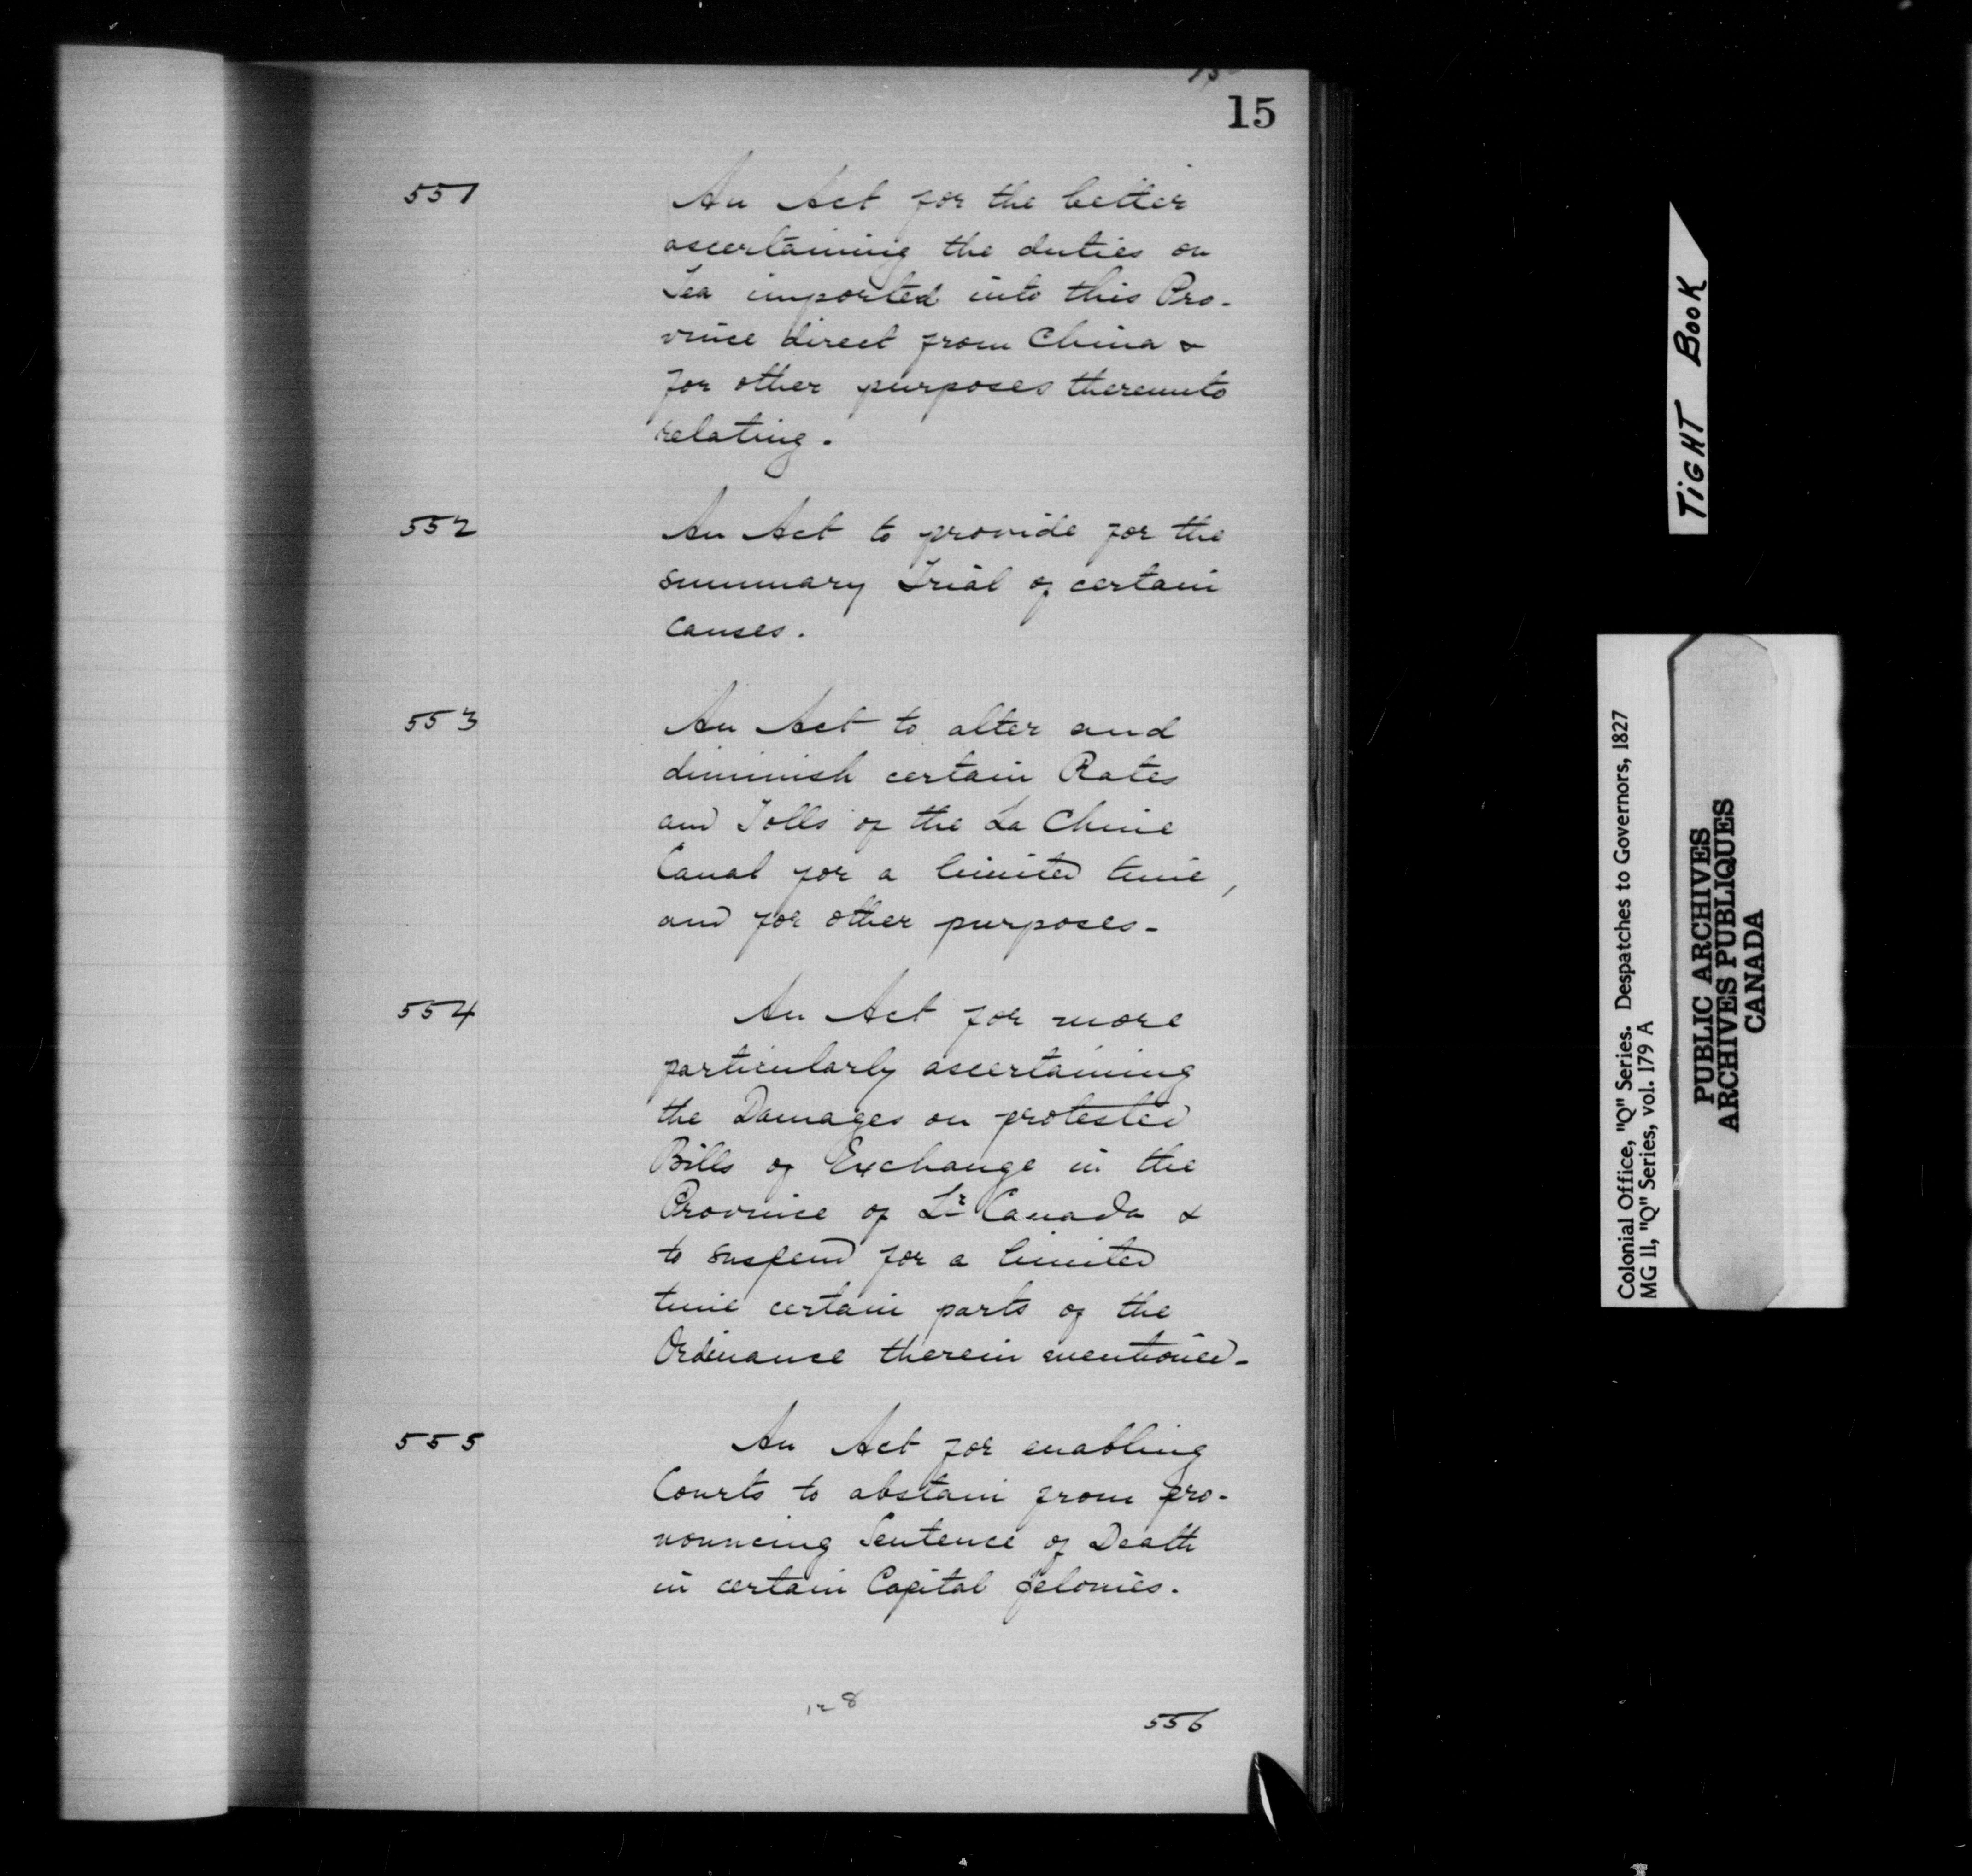 15
15
551 An Act for the better
ascertaining the duties on
Tea imported into this Pro-
vince direct from China &
for other purposes thereunto
relating.
552 An Act to provide for the
summary Trial of certain
causes.
553 An Act to alter and
diminish certain Rates
and Tolls of the La Chine
Canal for a limited time,
and for other purposes-
554 An Act for more
particularly ascertaining
the Damages on protested
Bills of Exchange in the
Province of Lr Canada &
to suspend for a limited
time certain parts of the
Ordinance therein mentioned-
555 An Act for enabling
Courts to abstain from pro-
nouncing Sentence of Death
in certain Capital felonies.
556
TIGHT BOOK
Colonial Office, "Q" Series. Despatches to Governors, 1827
MG 11, "Q" Series, vol. 179 A
PUBLIC ARCHIVES
ARCHIVES PUBLIQUES
CANADA